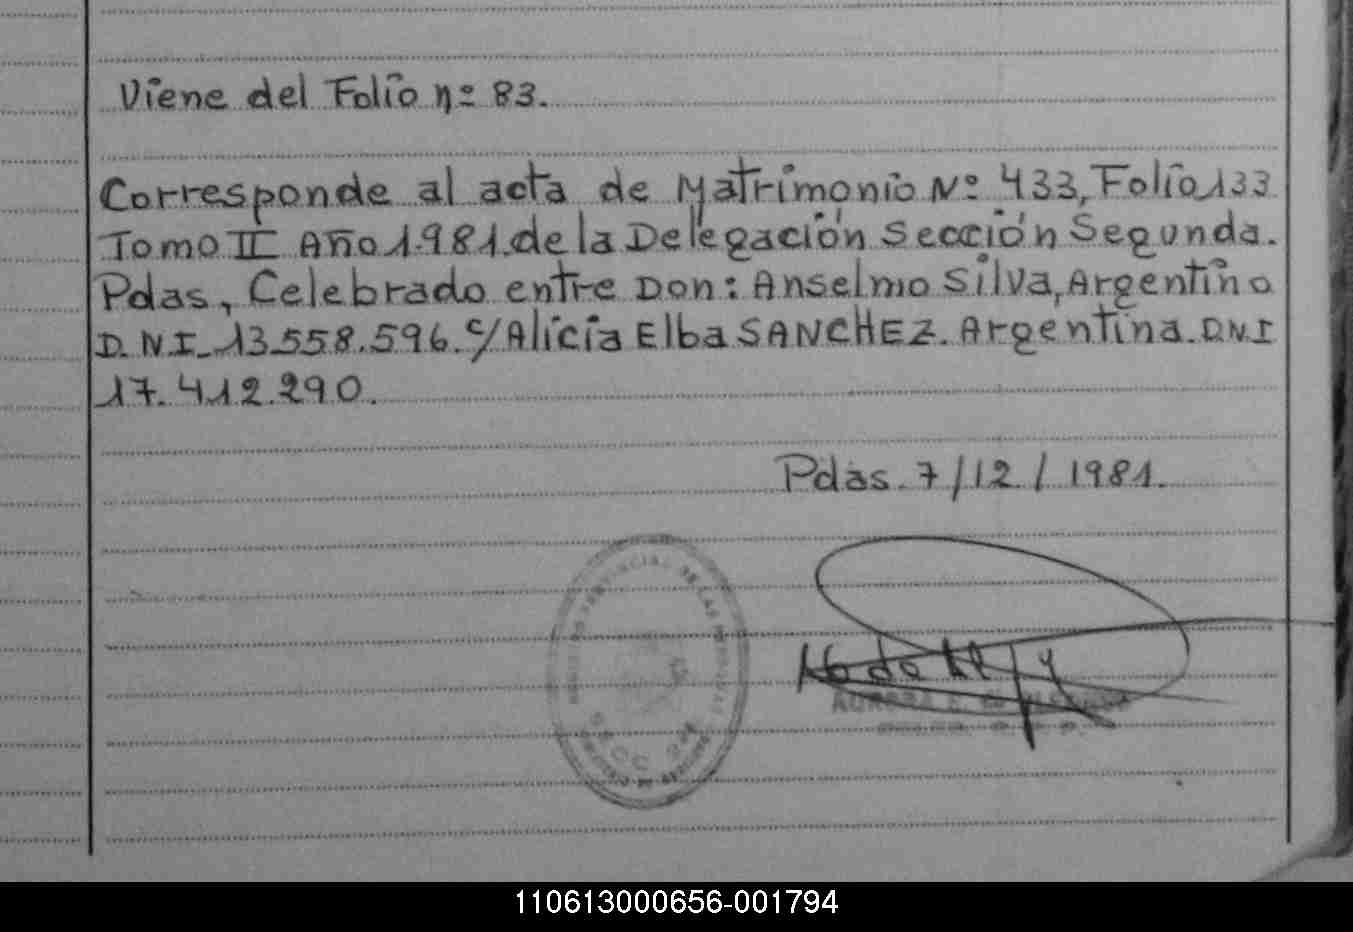 Viene del Folio nº 83.
Corresponde al acta de Matrimonio Nº 433, Folio 133
Tomo II Año 1.981. de la Delegación Sección Segunda.
Pdas, Celebrado entre Don: Anselmo Silva, Argentino
D.N.I. 13.558.596. c/ Alicia Elba SANCHEZ. Argentina. D.N.I
17.412.290.
Pdas. 7/12/1981.
110613000656-001794